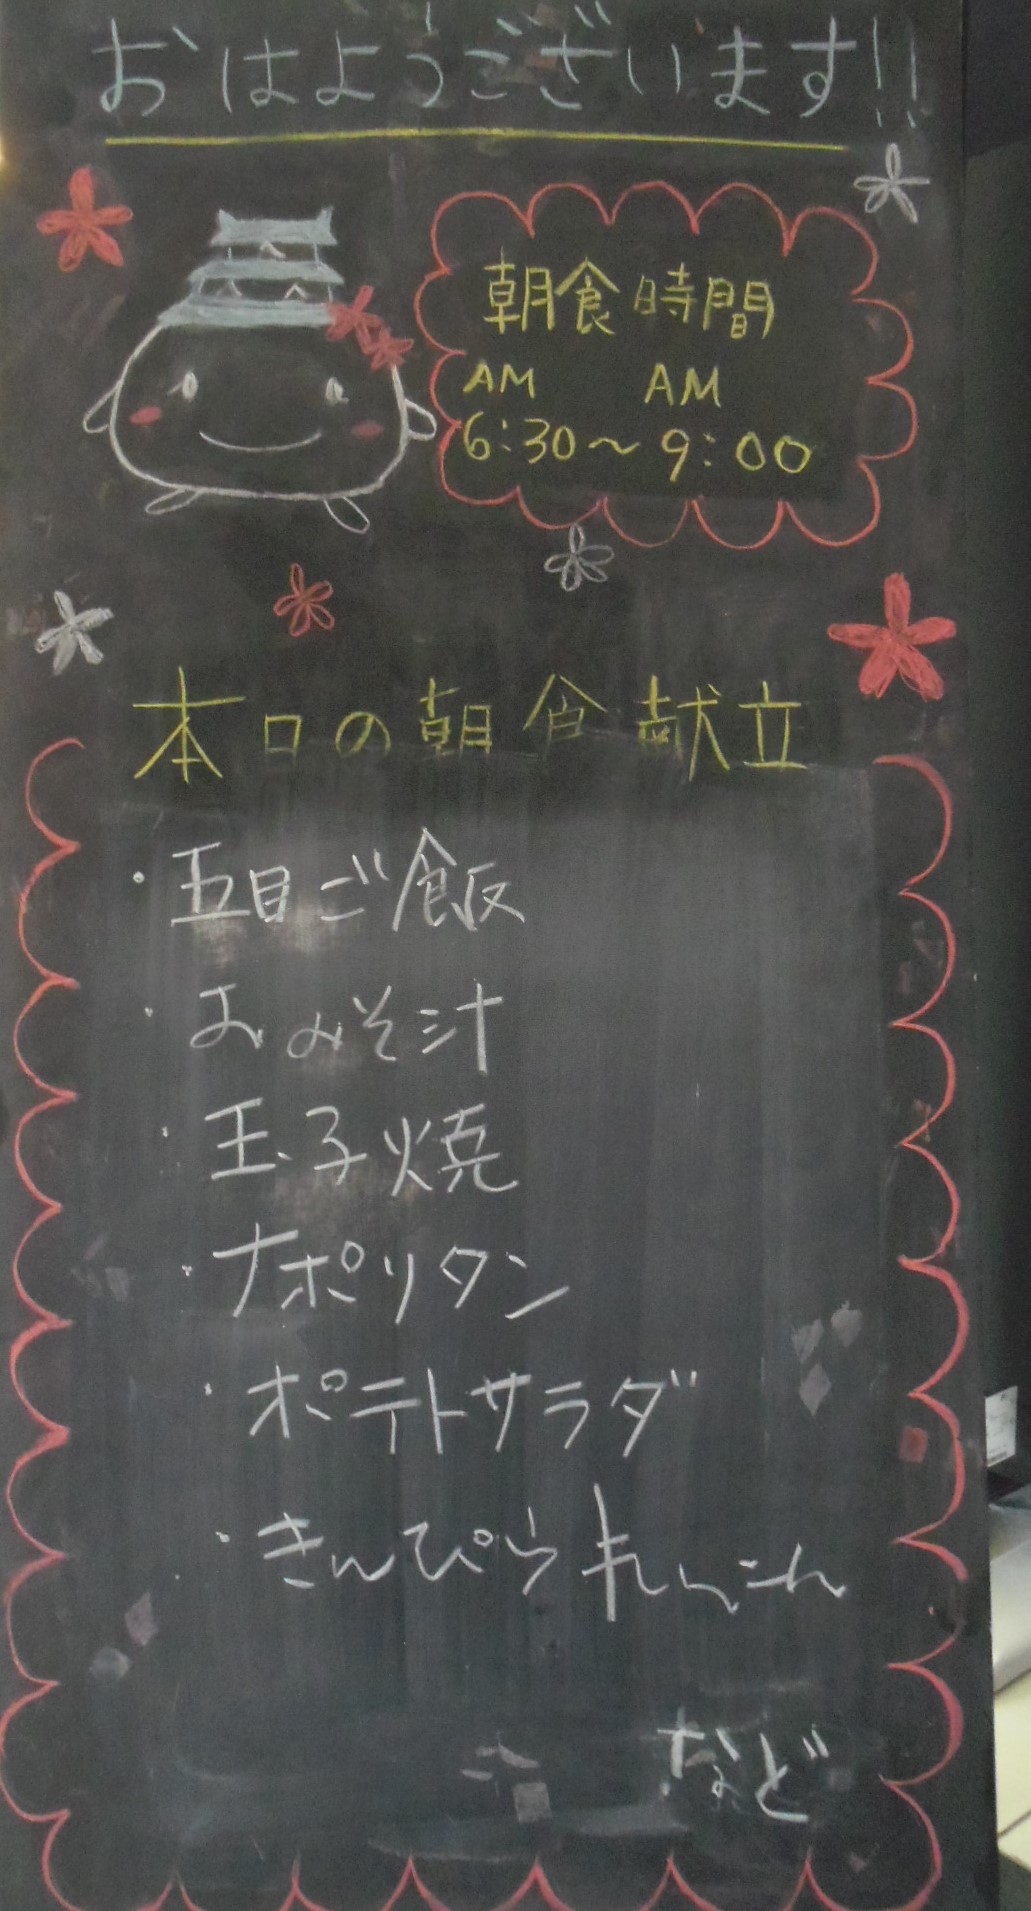 おはようございます!!
朝食時間
AM AM
6:30～9:00
本日の朝食献立
・五目ご飯
・おみそ汁
・玉子焼
・ナポリタン
・ポテトサラダ
・きんぴられんこん
など